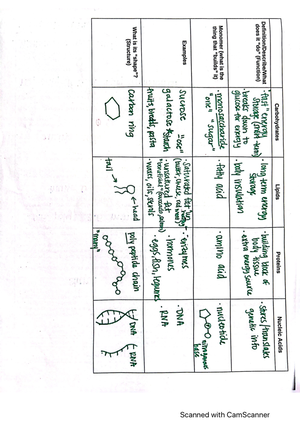 Carbohydrates
Lipids
Proteins
Nucleic Acids
Definition/Describe/What
does it "do" (Function)
• "fast" energy
storage (short-term)
• breaks down to
glucose for energy
• long term energy
storage
• body insulation
• building block of
body tissue
• extra energy source
• Stores/translates
genetic info
Monomer (what is the
thing that "builds" it)
• monosaccharide
"one" "sugar"
• fatty acid
• amino acid
• nucleotide
nitrogenous
base
Examples
sucrose "ose"
galactose
fruits, bread, pasta
• Saturated fat
• unsaturated fat
• waxes, oils, steroids
• enzymes
• hormones
• eggs, fish, legumes
• DNA
• RNA
What is its "shape"?
(Structure)
carbon ring
tail
head
poly peptide chain
"many"
DNA
RNA
Scanned with CamScanner